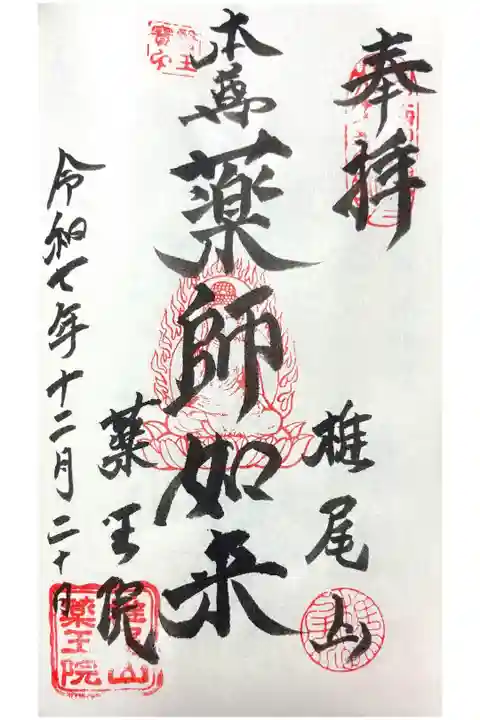 奉拝
椎尾山
本尊薬師如来
薬王院
令和七年十二月二十日
薬王院